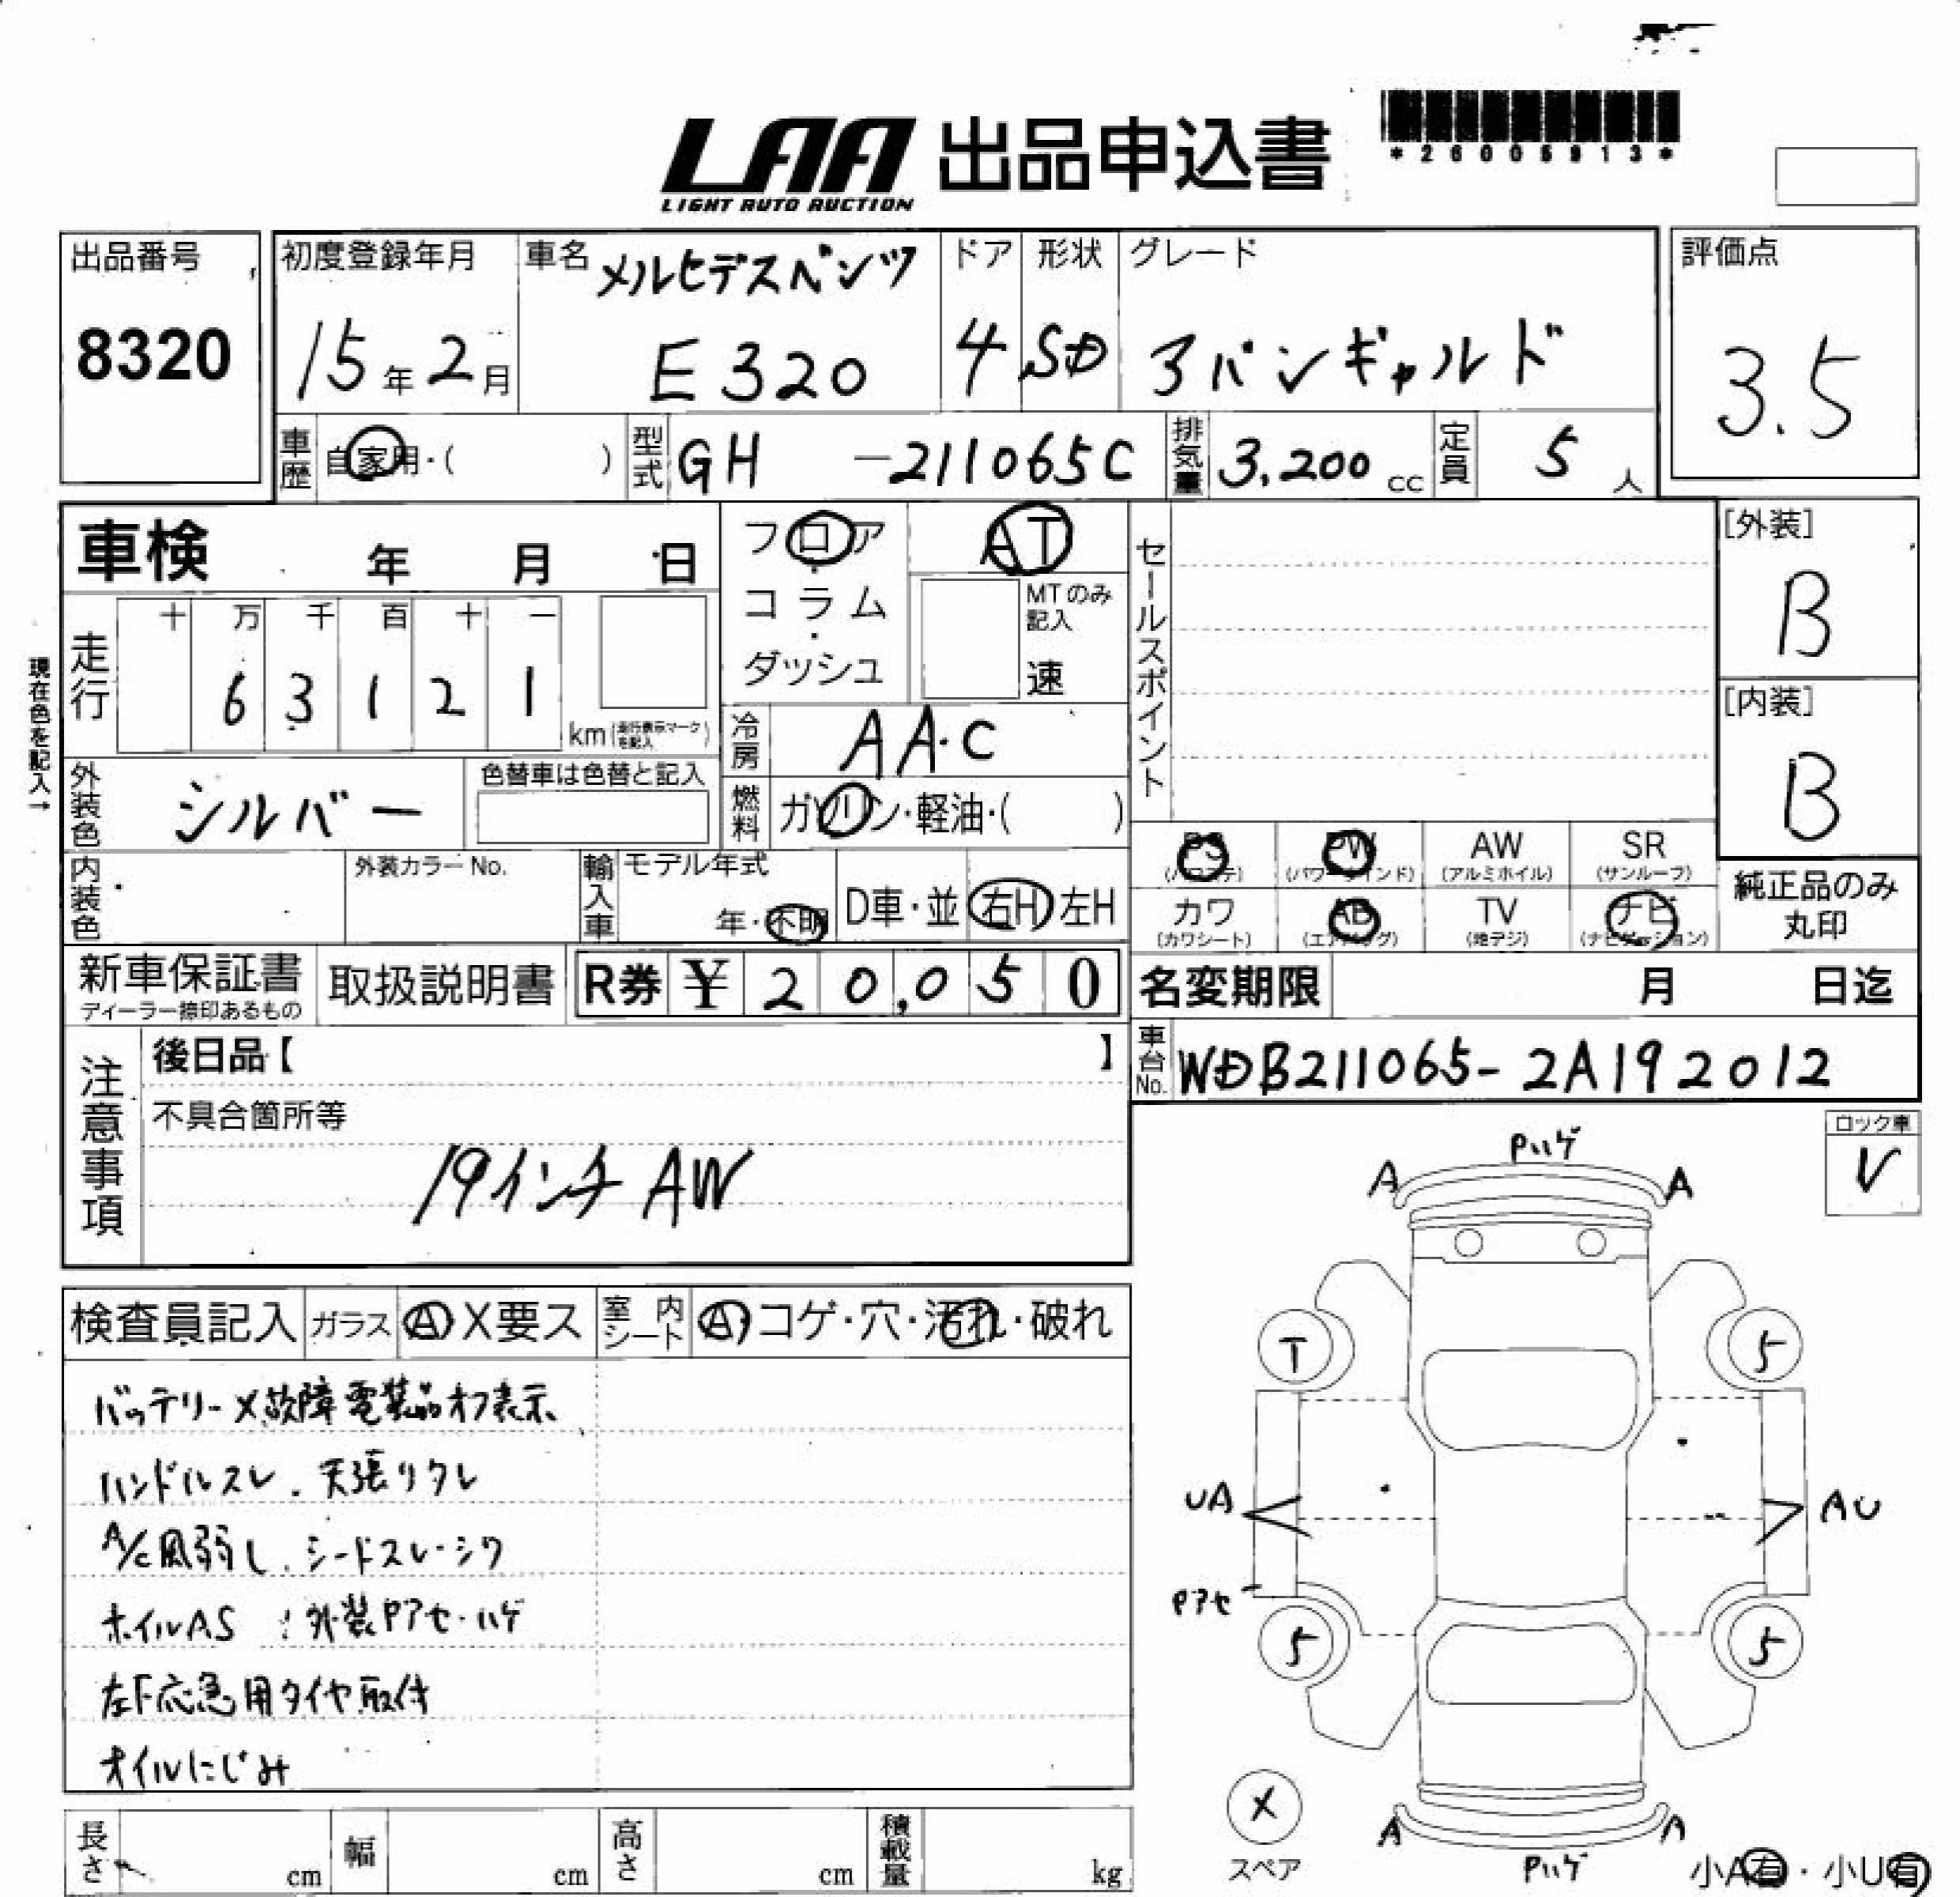 LAA 出品申込書
LIGHT AUTO AUCTION
*26005913*
出品番号
8320
初度登録年月
15年2月
車名 メルセデスベンツ
E320
ドア
4
形状
SD
グレード
アバンギャルド
評価点
3.5
車歴 自家用・( )
型式 GH -211065C
排気量 3,200 cc
定員 5人
車検 年 月 日
フロア・コラム・ダッシュ
AT
MTのみ記入
速
セールスポイント
[外装]
B
[内装]
B
現在色を記入→
走行
十 万 千 百 十 一
6 3 1 2 1
km (走行表示マークを記入)
冷房 AA.C
外装色 シルバー
色替車は色替と記入
燃料 ガソリン・軽油・( )
内装色
外装カラーNo.
輸入車
モデル年式
年・不明
D車・並 右H 左H
PS (パワステ)
PW (パワーウインド)
AW (アルミホイル)
SR (サンルーフ)
カワ (カワシート)
AB (エアバッグ)
TV (地デジ)
ナビ (ナビゲーション)
純正品のみ
丸印
新車保証書
ディーラー捺印あるもの
取扱説明書
R券 ¥ 20,050
名変期限 月 日迄
車台No. WDB211065-2A192012
注意事項
後日品【 】
不具合箇所等
19インチAW
ロック車
V
検査員記入 ガラス A X要ス 室内シート A コゲ・穴・汚れ・破れ
バッテリーX故障電装品オフ表示
ハンドルスレ.天張りタレ
A/C風弱し.シードスレ・シワ
ホイルAS :外装Pアセ・ハゲ
左F応急用タイヤ取付
オイルにじみ
Pハゲ
A A
T 5
UA AU
Pアセ
5 5
X
スペア
A A
Pハゲ
小A有・小U有
長さ cm 幅 cm 高さ cm 積載量 kg